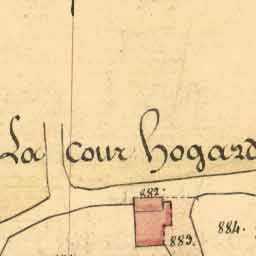 La cour hogard
882.
884.
883.